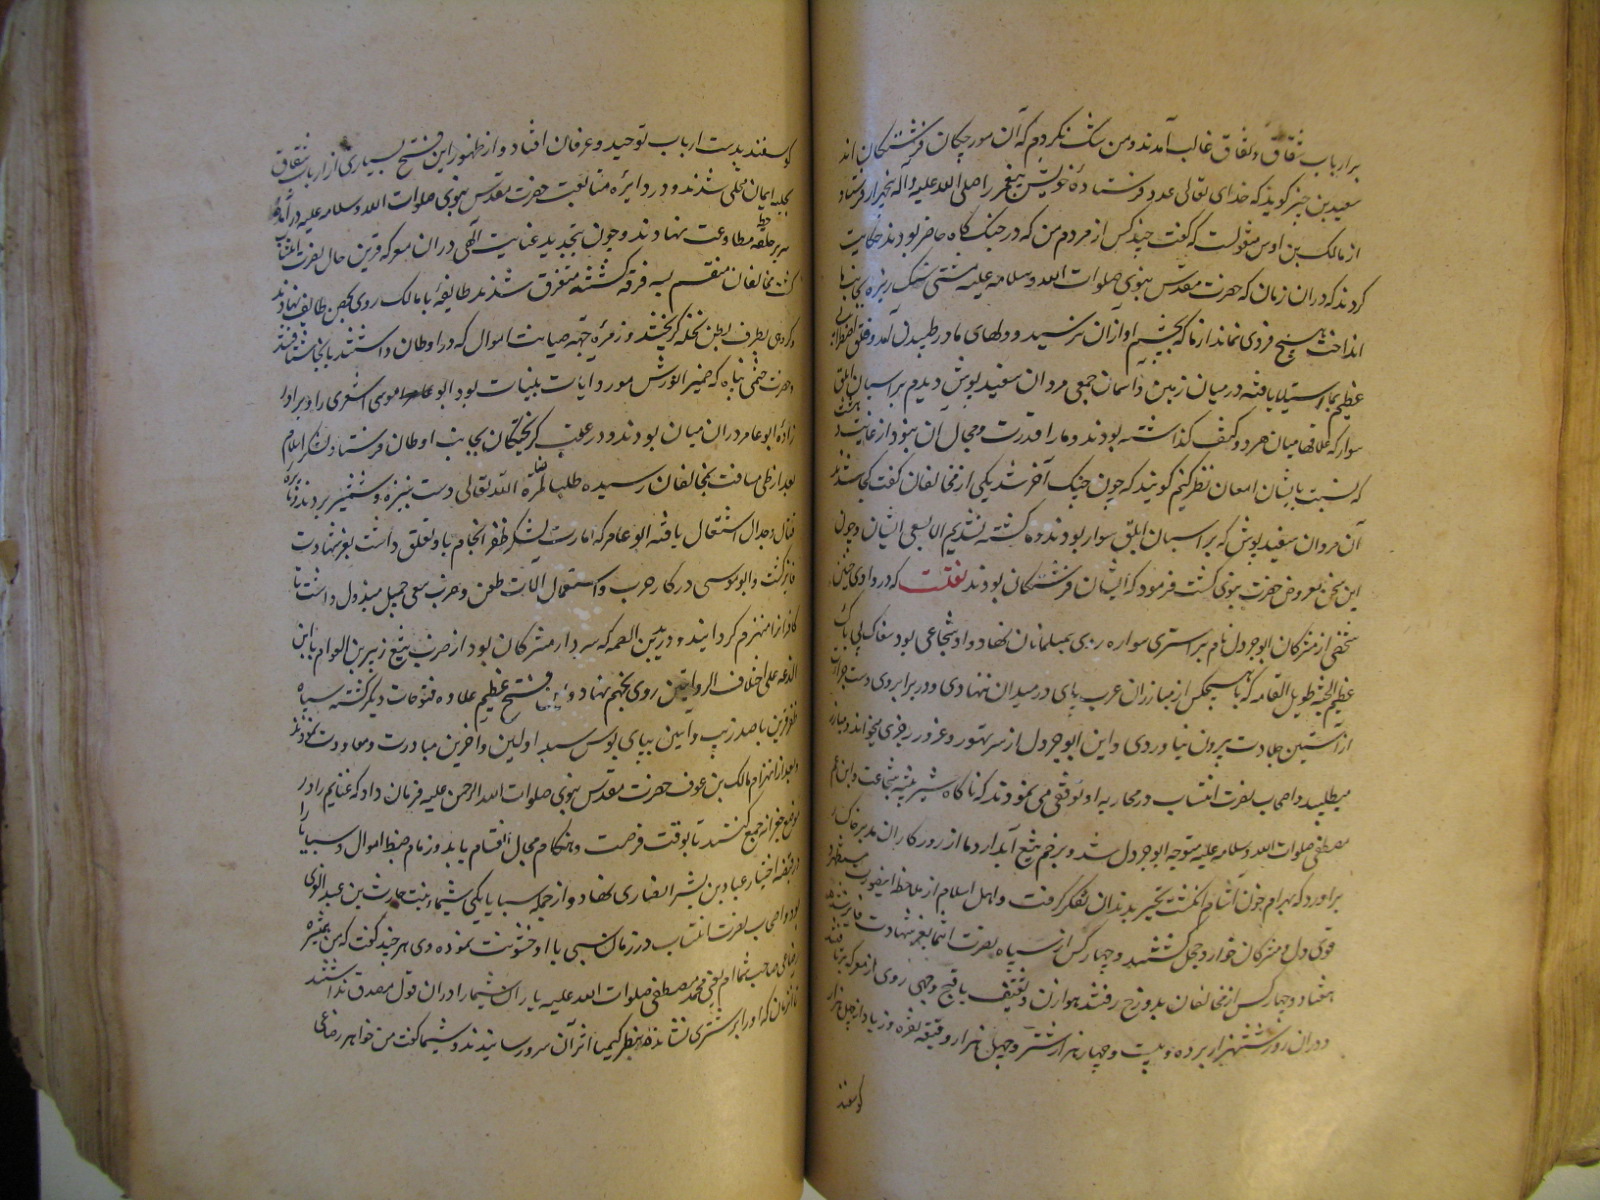 بر ارباب شقاق و نفاق غالب آمدند و من شک نکردم که آن مورچکان فرشتکان اند
سعید بن جبیر کوید که خدای تعالی عدد فرستادۀ خویش پیغمبر را صلی الله علیه و آله پنجهزار فرستاد
از مالک بن اوس منقولست که کفت چند کس از مردم من که در جنک کاه حاضر بودند حکایت
کردند که دران زمان که حضرت مقدس نبوی صلوات الله و سلامه علیه مشتی سنک ریزه بجانب ما
انداخت هیچ فردی نماند از ما که بچشم او ازان نرسید و دلهای ما در طپیدن آمد و قلق و اضطرابی
عظیم بما استیلا یافته در میان زمین و آسمان جمعی مردان سفید پوش دیدم بر اسبان ابلق
سوار که علاقها میان هر دو کتف کذاشته بودند و ما را قدرت و مجال آن نبود از غایت
که نسبت بایشان امعان نظر کنیم کویند که چون جنک آخر شد یکی از مخالفان کفت کجا شدند
آن مردان سفید پوش که بر اسبان ابلق سوار بودند و کشته نشدیم الا بسعی ایشان و چون
این سخن معروض حضرت نبوی کشت فرمود که ایشان فرشتکان بودند نقلست که در وادی حنین
شخصی از مشرکان ابو جرول نام بر استری سواره ربی بمسلمانان نهاد و او شجاعی بود سفاک بی باک
عظیم الجثه طویل القامه که با هیچکس از مبارزان عرب پای در میدان ننهادی و در برابر وی دست جرأت
از آستین جلادت بیرون نیاوردی و این ابو جرول از سر تهور و غرور رجزی میخواند و مبارز
میطلبید و اصحاب نصرت انتساب در محاربه او توقفی می نمودند که ناکاه شیر بیشه شجاعت و ابن عم
مصطفی صلوات الله و سلامه علیه متوجه ابو جرول شد و بزخم تیغ آبدار دمار از روزکار ان مدبر خاکسار
براورد که بهرام خون آشام انکشت تحیر بدندان تفکر کرفت و اهل اسلام از ملاحظه اینصورت مستظهر و
قوی دل و مشرکان خوار و خجل کشتند و چهار کس از سپاه نصرت انتما بعز شهادت فایز شدند
هفتاد و چهار کس از مخالفان بدوزخ رفتند هوازن و ثقیف باقبح وجهی روی از معرکه برتافتند
دران روز شش هزار برده و بیست و چهار هزار شتر و چهل هزار وقیه نقره و زیاده از چهل هزار
کوسفند
کوسفند بدست ارباب توحید و عرفان افتاد و از ظهور این فتح بسیاری از ارباب شقاق
بحلیه ایمان محلی شدند و در دایرۀ متابعت حضرت مقدس نبوی صلوات الله و سلامه علیه در آمده
سر بر خط مطاوعت نهادند و چون بتجدید عنایت الهی دران معرکه قرین حال نصرت انتساب
کشت مخالفان منقسم بسه فرقه کشته متفرق شدند طایفۀ با مالک روی بحصن طایف نهادند
و کروهی بطرف بطن نخله کریختند و زمرۀ جهة صیانت اموال که در اوطاس داشتند بانجا شتافتند
و حضرت ختمی پناه که ضمیر انورش مورد ایات بینات بود ابو عامر اموی اشعری را و برادر
زادۀ ابو عامر دران میان بودند در عقب کریختکان بجانب اوطاس فرستاد لشکر اسلام
بعد از طی مسافت بمخالفان رسیده طلبا لمرضاة الله تعالی دست بنیزه و شمشیر بردند و بایره
قتال و جدال اشتعال یافته ابو عامر که امارت لشکر ظفر انجام باو تعلق داشت بعز شهادت
فایز کشت و ابو موسی در کار حرب و استعمال آلات طعن و ضرب سعی جمیل مبذول داشت تا
کافران را منهزم کردانید و درید بن الصمه که سردار مشرکان بود از ضرب تیغ زبیر بن العوام یا ابن
الدغنه علی اختلاف الروایتین روی بجهنم نهاد و این فتح عظیم علاوه فتوحات دیکر کشته سپاه
ظفر قرین با صد زیب و آیین بپای بوس سید اولین و آخرین مبادرت و معاودت نمودند
و بعد از انهزام مالک بن عوف حضرت مقدس نبوی صلوات الله الرحمن علیه فرمان داد که غنایم را در
موضع جعرانه جمع کنند تا بوقت فرصت و هنکام مجال انقسام یابد و زمام ضبط اموال و سبایا را
در قبضه اختیار عباد بن بشر انصاری نهاد و از جمله سبایا یکی شیماء بنت حارث بن عبد العزی
بود و اصحاب نصرت انتساب در زمان سبی با او خشونت نموده وی هر چند کفت که من همشیره
رضاعی صاحب شماام یعنی محمد مصطفی صلوات الله علیه یاران شیما را دران قول مصدق نداشتند
تا آنزمان که او را بر شتری نشانده بنظر کیمیا اثر آن سرور رسانیدند و شیما کفت من خواهر رضاعی